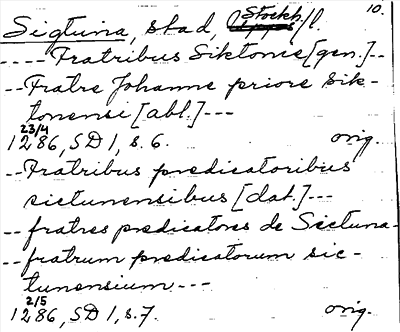 10.
Sigtuna, stad, Stockh. l.
---- Fratribus Siktonie [gen.]--
-- Fratre Johanne priore Sik-
tonensi [abl.]---
23/4
1286, SD 1, s. 6. orig.
-- Fratribus predicatoribus
sictunensibus [dat.]---
-- fratres predicatores de Sictuna-
-- fratrum predicatorum sic-
tunensium ---
2/5
1286, SD 1, s. 7. orig.